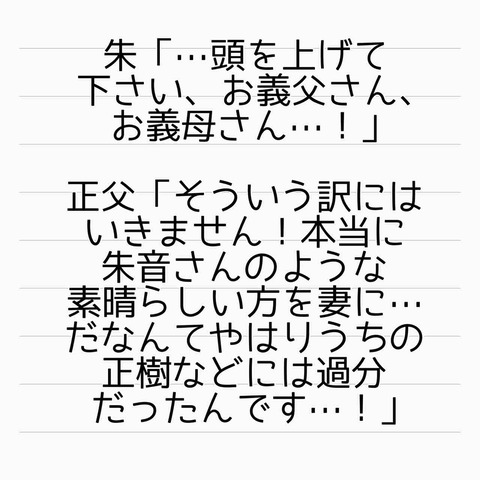 朱「…頭を上げて
下さい、お義父さん、
お義母さん…！」
正父「そういう訳には
いきません！本当に
朱音さんのような
素晴らしい方を妻に…
だなんてやはりうちの
正樹などには過分
だったんです…！」